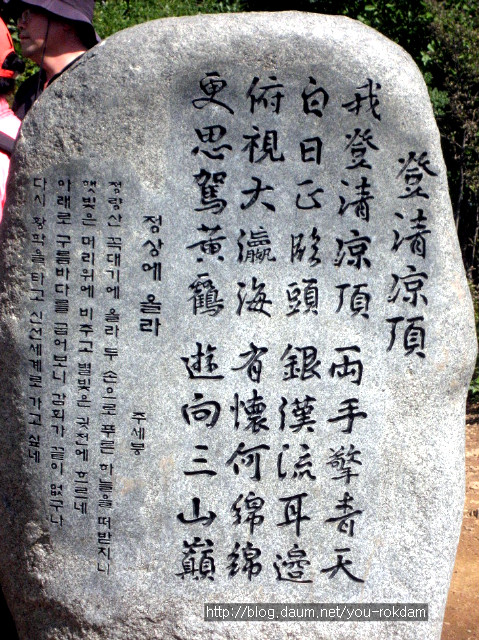 登清凉頂
我登清凉頂 両手擎青天
白日正臨頭 銀漢流耳邊
俯視大瀛海 有懷何綿綿
更思駕黃鶴 遊向三山巔
정상에 올라
주세붕
청량산 꼭대기에 올라 두 손으로 푸른 하늘을 떠받치니
햇빛은 머리위에 비추고 별빛은 귓전에 흐르네
아래로 구름바다를 굽어보니 감회가 끝이 없구나
다시 황학을 타고 신선세계로 가고 싶네
http://blog.daum.net/you-rokdam